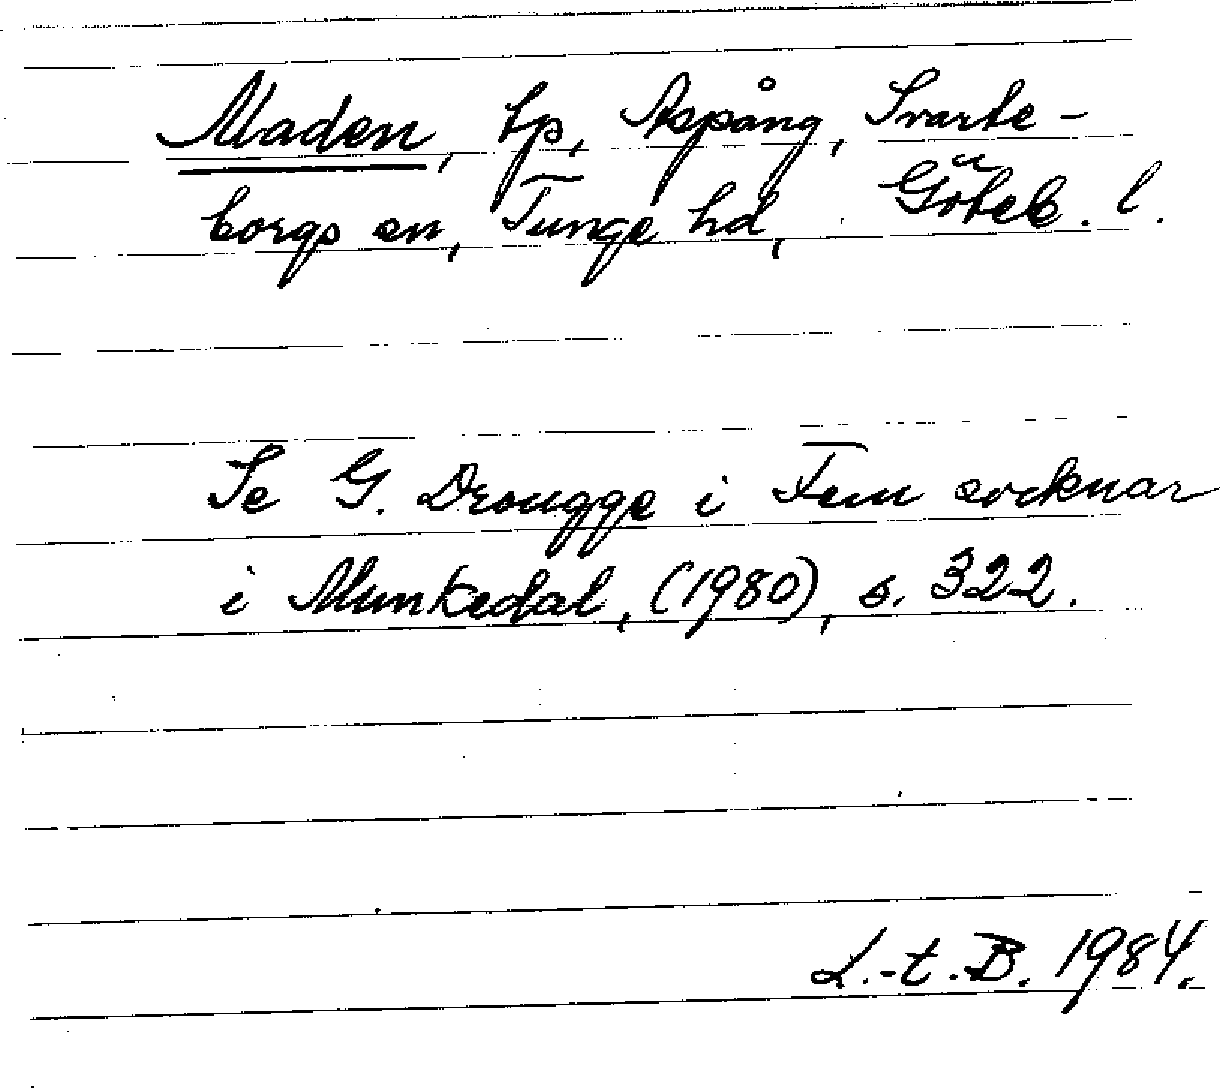 Maden, tp, Aspång, Svarte-
borgs sn, Tunge hd, Göteb. l.
Se G. Drougge i Fem socknar
i Munkedal, (1980), s. 322.
L.-t.B. 1984.